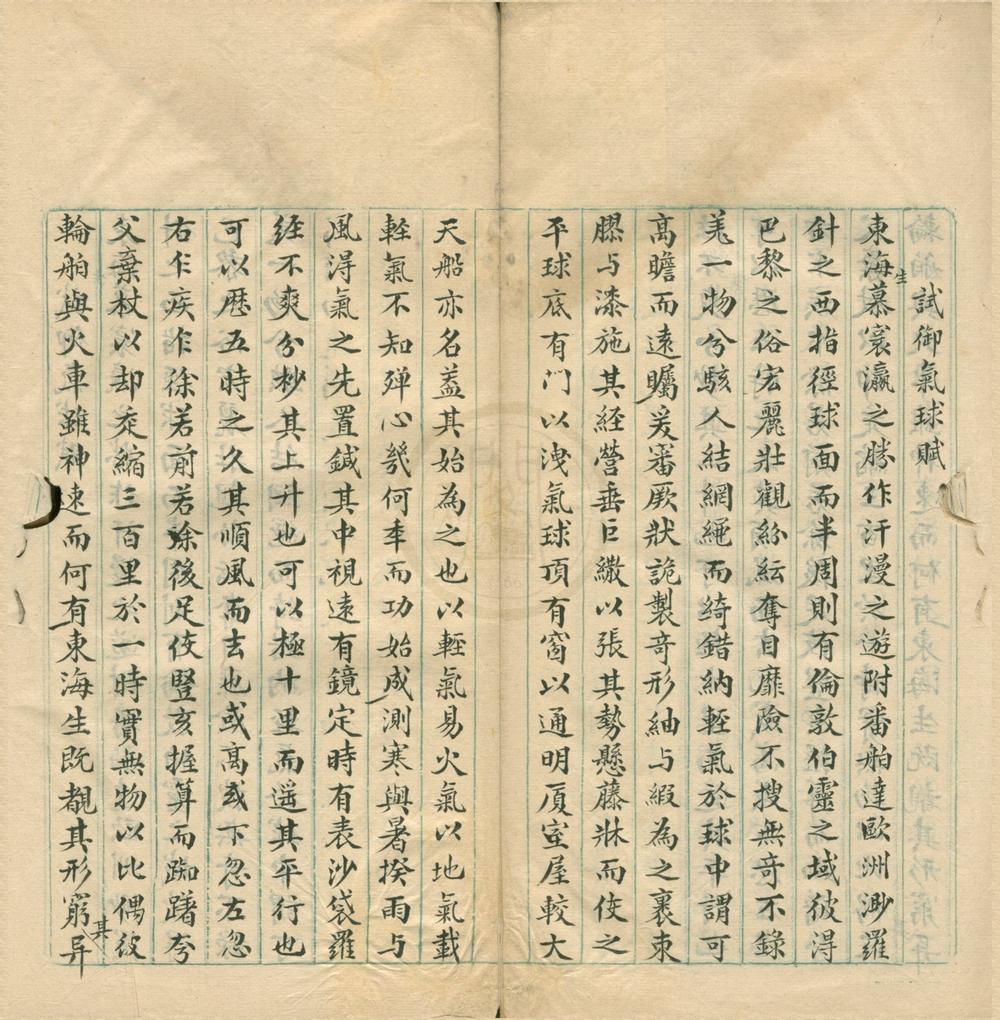 試御氣球賦
東海生慕寰瀛之勝作汗漫之遊附番舶達歐洲渺羅
針之西指徑球面而半周則有倫敦伯靈之域彼淂
巴黎之俗宏麗壯觀紛紜奪目靡險不搜無奇不錄
羌一物兮駭人結網繩而綺錯納輕氣於球中謂可
高瞻而遠矚爰審厥狀詭製奇形紬与緞為之裏束
膠与漆施其経營垂巨繳以張其勢懸藤牀而使之
平球底有門以洩氣球頂有窗以通明厦室屋較大
天船亦名葢其始為之也以輕氣易火氣以地氣載
輊氣不知殫心幾何年而功始成測寒與暑揆雨与
風淂氣之先置鍼其中視遠有鏡定時有表沙袋羅
経不爽分杪其上升也可以極十里而遥其平行也
可以歴五時之久其順風而去也或髙或下忽左忽
右乍疾乍徐若前若後足使豎亥握算而踟躇夸
父棄杖以却走縮三百里於一時實無物以比偶彼
輪舶與火車雖神速而何有東海生既覩其形窮其异